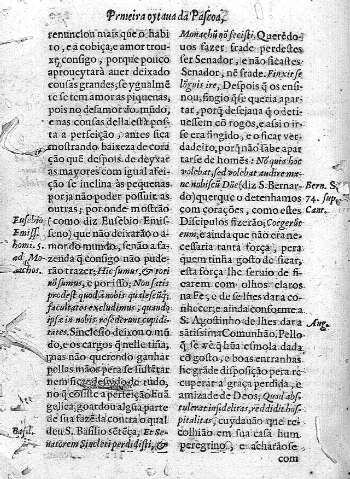 Primeira oytaua da Pascoa,
renunciou mais que o habi-
to, e a cobiça, e amor trou-
xe consigo, porque pouco
aproueytara auer deixado
cousas grandes, se ygualmē
te se tem amor as piquenas,
pois no desamor do mūdo,
e nas cousas della està pos-
ta a perfeição, antes fica
mostrando baixeza de cora
ção quē despois de deyxar
as mayores com igual afei-
ção se inclina às pequenas
por ja não poder possuir as
outras; por onde mostrão
Eusebio
(como diz Eusebio Emis-
Emiss.
seno) que não deixarão o a-
hom. 5.
mor do mundo, senão a fa-
ad Mo-
zenda q̄ consigo não pude-
nachos.
rão trazer: Hic sumus, & hic
nō sumus, e por isso: Non satis
prodest quod à nobis
facultates excludimus, quando
ipsæ in nobis
tates. Sincleсio deixou o mū
do, e os cargos q̄ nelle tiña,
mas não querendo ganhar
pellas mãos pera se sustētar
nem ficar despido de tudo,
no q̄ cōsiste a perfeição Euā
gelica, goardou algūa parte
de sua fazēda contra o qual
Basil.
deu S. Basilio sētēça, Et Se-
natorem Sincleti perdidisti, &
Monachū nō fecisti. Querēdo
uos fazer frade perdestes
ser Senador, e não ficastes
Senador, nē frade. Finxit se
lōgius ire, Despois q̄ os ensi-
nou, fingio q̄ se queria apar-
tar, porq̄ desejaua q̄ o deti-
uessem cō rogos, e assi o ir-
se era fingido, e o ficar ver-
dadeiro, porq̄ não sabe apar
tarse de homēs: Nō quia hoc
volebat, sed volebat audire ma-
ne nobiscū Dñe (diz S. Bernar-
Bern. S.
do) querque o detenhamos
74. sup.
com corações, como estes
Cant.
Discipulos fizerão; Coegerūt
eum, e ainda que não era ne-
cessaria tanta força, pera
quem tinha gosto de ficar,
esta força lhe seruio de fi-
carem com olhos claros
na Fe, e de se lhes dar a co-
nhecer, e ainda conforme a
S. Agostinho de lhes dar a
Aug.
sanctissima Comunhão. Pello
q̄ se vè q̄ hūa esmola dada
cō gosto, e boas entranhas
he grāde disposição pera re-
cuperar a graça perdida, e
amizade de Deos, Quod abs-
tulerat infidelitas, reddidit hos-
pitalitas, cuydauão que re-
colhião em sua casa hum
peregrino, e acharãose
com